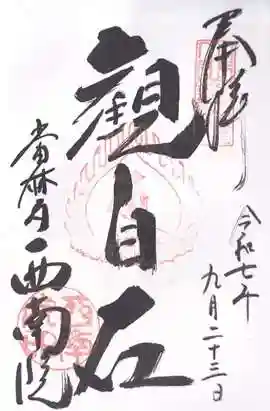 奉拝
令和七年
九月二十三日
観自在
當麻寺 西南院